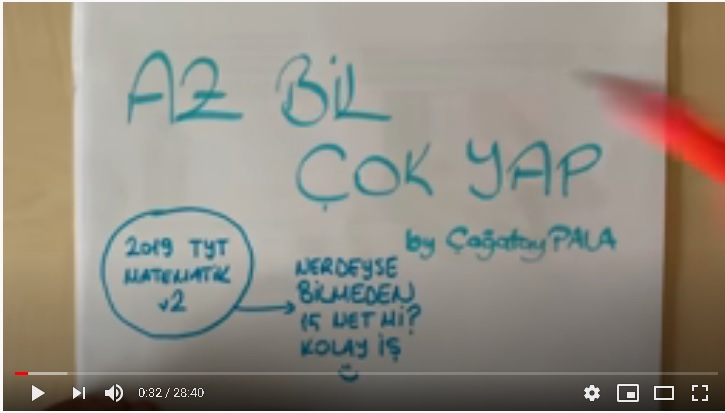 AZ BİL
ÇOK YAP
by Çağatay PALA
2019 TYT
MATEMATİK
v2
NERDEYSE
BİLMEDEN
15 NET Mİ?
KOLAY İŞ
0:32 / 28:40